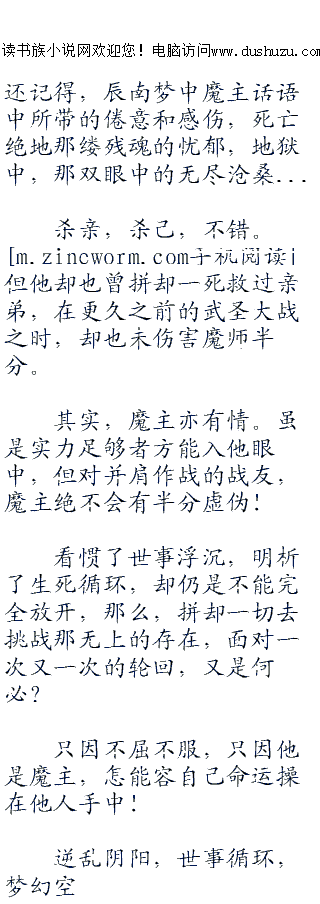 读书族小说网欢迎您！电脑访问www.dushuzu.com
还记得，辰南梦中魔主话语
中所带的倦意和感伤，死亡
绝地那缕残魂的忧郁，地狱
中，那双眼中的无尽沧桑...
杀亲，杀己，不错。
[m.zincworm.com手机阅读|
但他却也曾拼却一死救过亲
弟，在更久之前的武圣大战
之时，却也未伤害魔师半
分。
其实，魔主亦有情。虽
是实力足够者方能入他眼
中，但对并肩作战的战友，
魔主绝不会有半分虚伪！
看惯了世事浮沉，明析
了生死循环，却仍是不能完
全放开，那么，拼却一切去
挑战那无上的存在，面对一
次又一次的轮回，又是何
必？
只因不屈不服，只因他
是魔主，怎能容自己命运操
在他人手中！
逆乱阴阳，世事循环，
梦幻空